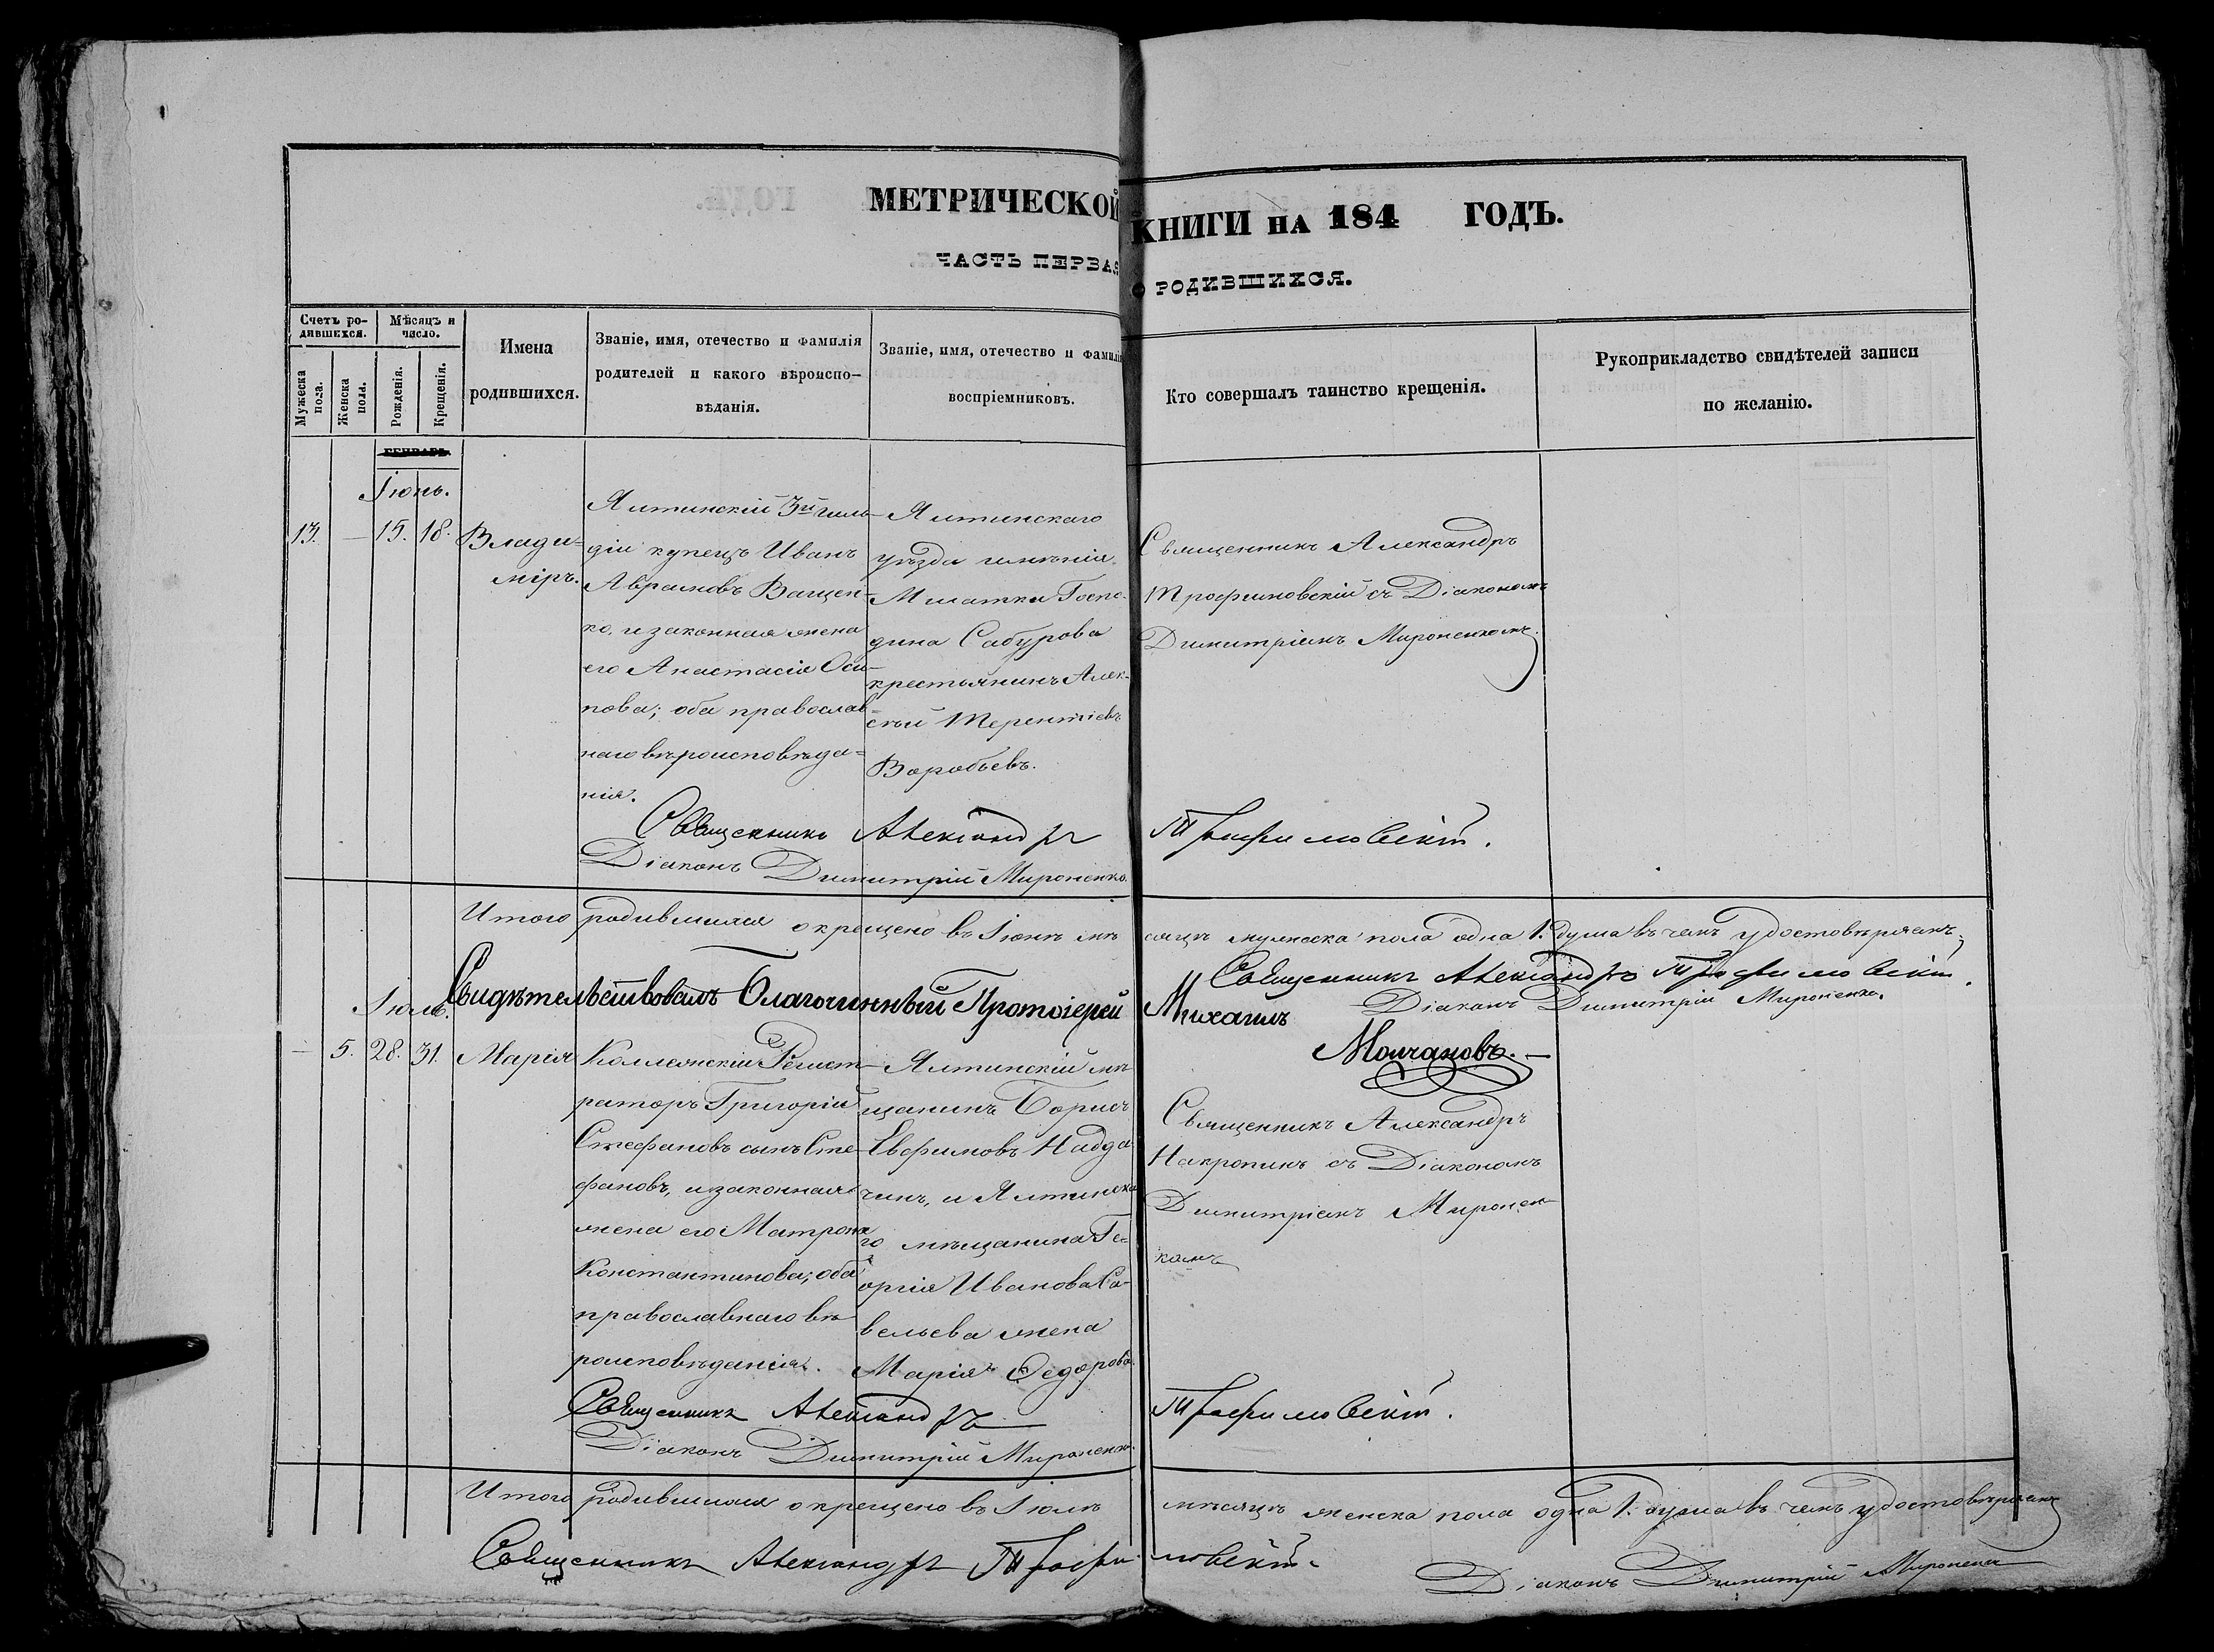 МЕТРИЧЕСКОЙ КНИГИ НА 184 ГОДЪ.
ЧАСТЬ ПЕРВАЯ О РОДИВШИХСЯ.
Счетъ ро-
дившихся.
Мужеска
пола.
Женска
пола.
Мѣсяцъ и
число.
Рожденія.
Крещенія.
Имена
родившихся.
Званіе, имя, отечество и фамилія
родителей и какого вѣроиспо-
вѣданія.
Званіе, имя, отечество и фамилія
воспріемниковъ.
Кто совершалъ таинство крещенія.
Рукоприкладство свидѣтелей записи
по желанію.
ГЕНВАРЬ.
Іюнь.
13. — 15. 18.
Влади=
міръ.
Ялтинскій 3й гиль-
діи купецъ Иванъ
Аврамовъ Ващен-
ко, и законная жена
его Анастасія Оси-
пова; оба православ=
наго вѣроисповѣда=
нія.
Ялтинскаго
уѣзда имѣнія
Мшатки Госпо-
дина Сабурова
крестьянинъ Алек-
сѣй Терентіевъ
Воробьевъ.
Священникъ Александръ
Трофимовскій съ Діакономъ
Димитріемъ Мироненкомъ.
Священникъ Александръ Трофимовскій.
Діаконъ Димитрій Мироненко.
Итого родившихся окрещено въ Іюнѣ мѣсяцѣ мужеска пола одна 1. душа въ чемъ удостовѣряемъ.
Священникъ Александръ Трофимовскій.
Діаконъ Димитрій Мироненко.
Свидѣтельствовалъ Благочинный Протоіерей Михаилъ
Молчановъ.
Іюль.
— 5. 28. 31.
Марія
Коллежскій Регист-
раторъ Григорій
Стефановъ сынъ Сте-
фановъ, и законная
жена его Матрона
Константинова; оба
православнаго вѣ-
роисповѣданія.
Ялтинскій мѣ-
щанинъ Борисъ
Евфимовъ
и Ялтинска
го мѣщанина Ге-
оргія Иванова Са-
вельева жена
Марія Ѳедорова.
Священникъ Александръ
Накропинъ съ Діакономъ
Димитріемъ Миронен-
комъ
Священникъ Александръ Трофимовскій.
Діаконъ Димитрій Мироненко.
Итого родившихся окрещено въ Іюлѣ мѣсяцѣ женска пола одна 1. душа въ чемъ удостовѣряемъ
Священникъ Александръ Трофимовскій.
Діаконъ Димитрій Мироненко